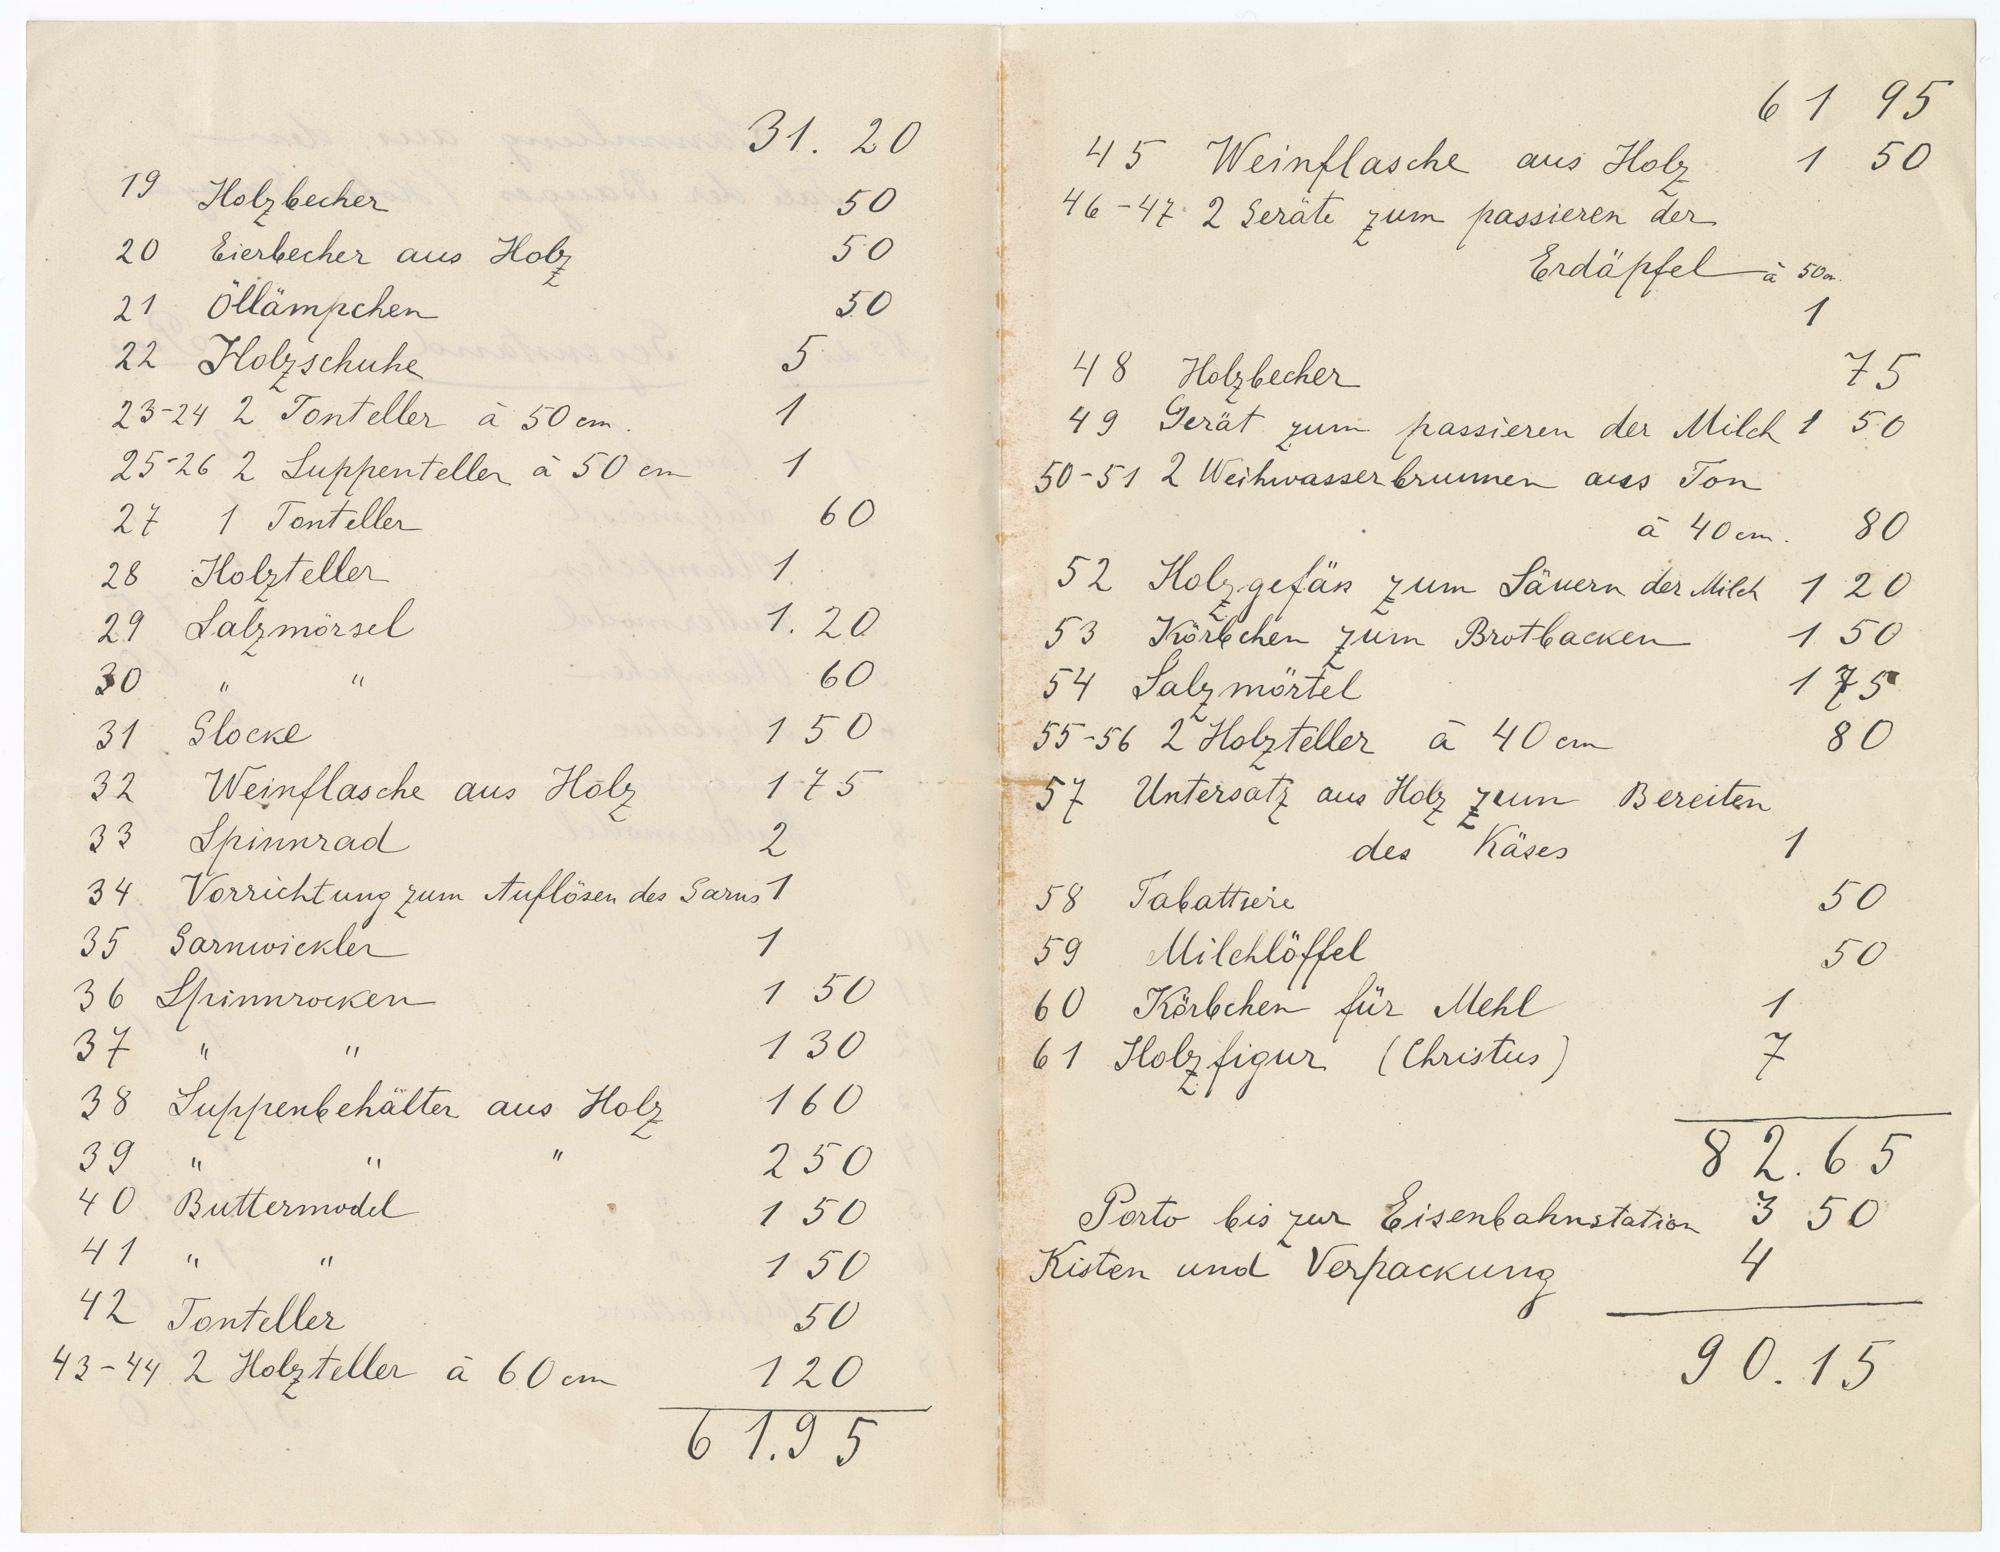 31. 20
19 Holzbecher 50
20 Eierbecher aus Holz 50
21 Öllämpchen 50
22 Holzschuhe 5
23-24 2 Tonteller à 50 cm. 1
25-26 2 Suppenteller à 50 cm 1
27 1 Tonteller 60
28 Holzteller 1
29 Salzmörsel 1.20
30 " " 60
31 Glocke 1 50
32 Weinflasche aus Holz 1 75
33 Spinnrad 2
34 Vorrichtung zum Auflösen des Garns 1
35 Garnwickler 1
36 Spinnrocken 1 50
37 " " 1 30
38 Suppenbehälter aus Holz 1 60
39 " " " 2 50
40 Buttermodel 1 50
41 " " 1 50
42 Tonteller 50
43-44 2 Holzteller à 60 cm 1 20
61.95
61 95
45 Weinflasche aus Holz 1 50
46-47 2 Geräte zum passieren der
Erdäpfel à 50 cm.
1
48 Holzbecher 75
49 Gerät zum passieren der Milch 1 50
50-51 2 Weihwasserbrunnen aus Ton
à 40 cm. 80
52 Holzgefäß zum Säuern der Milch 1 20
53 Körbchen zum Brotbacken 1 50
54 Salzmörtel 1 75
55-56 2 Holzteller à 40 cm 80
57 Untersatz aus Holz zum Bereiten
des Käses 1
58 Tabattiere 50
59 Milchlöffel 50
60 Körbchen für Mehl 1
61 Holzfigur (Christus) 7
82.65
Porto bis zur Eisenbahnstation 3 50
Kisten und Verpackung 4
90.15